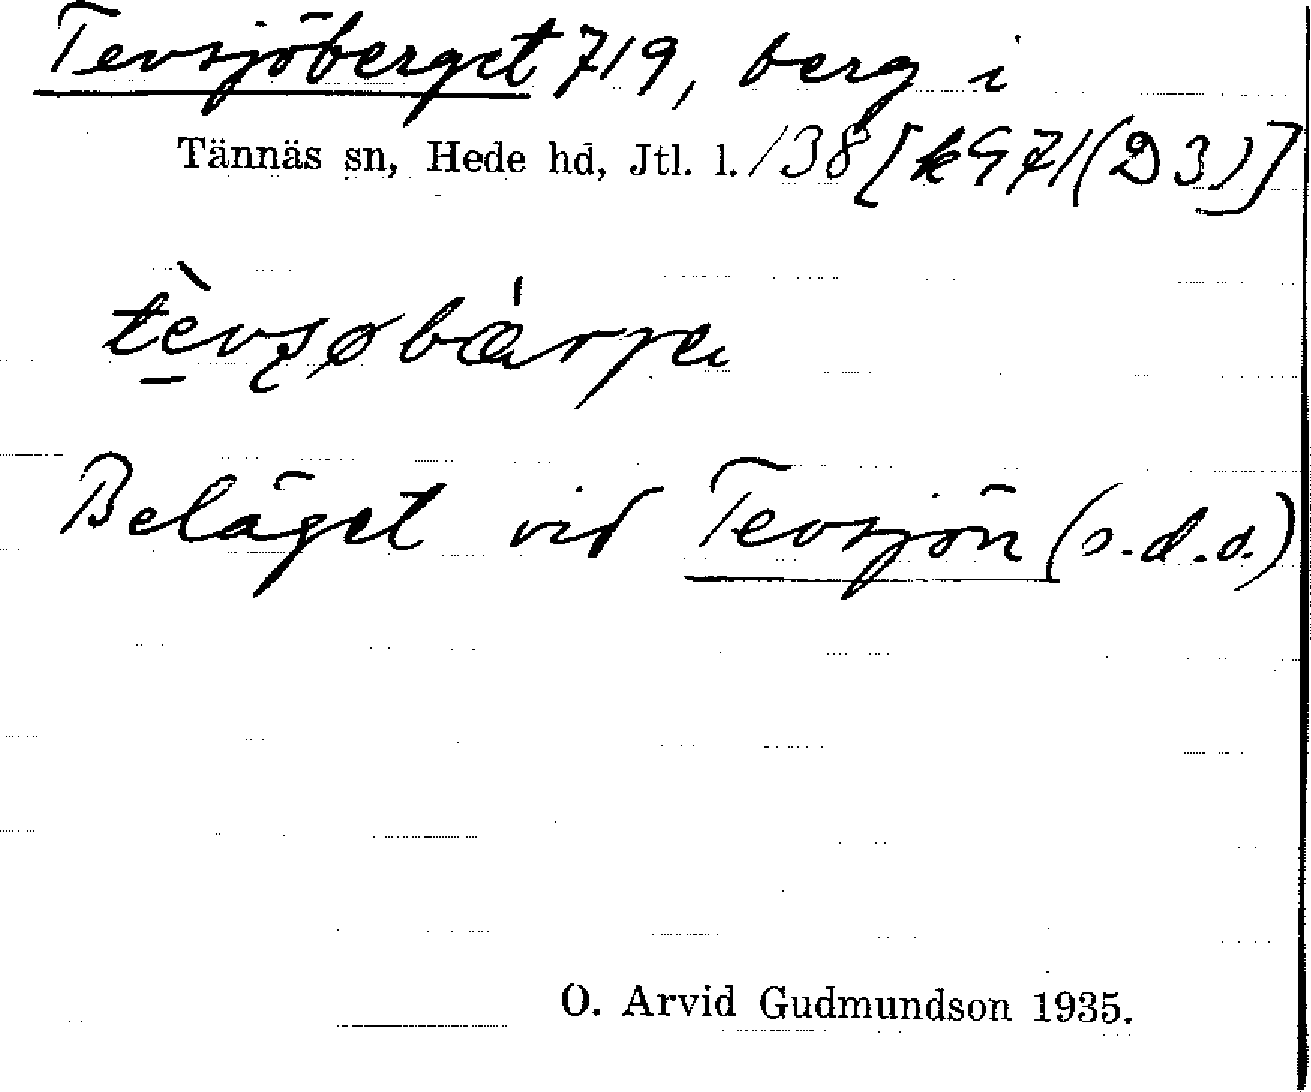 Tevsjöberget 719, berg i
Tännäs sn, Hede hd, Jtl. l. /38 [k971(D3)]
tèvsøbárjen
Beläget vid Tevsjön (s.d.o.)
O. Arvid Gudmundson 1935.